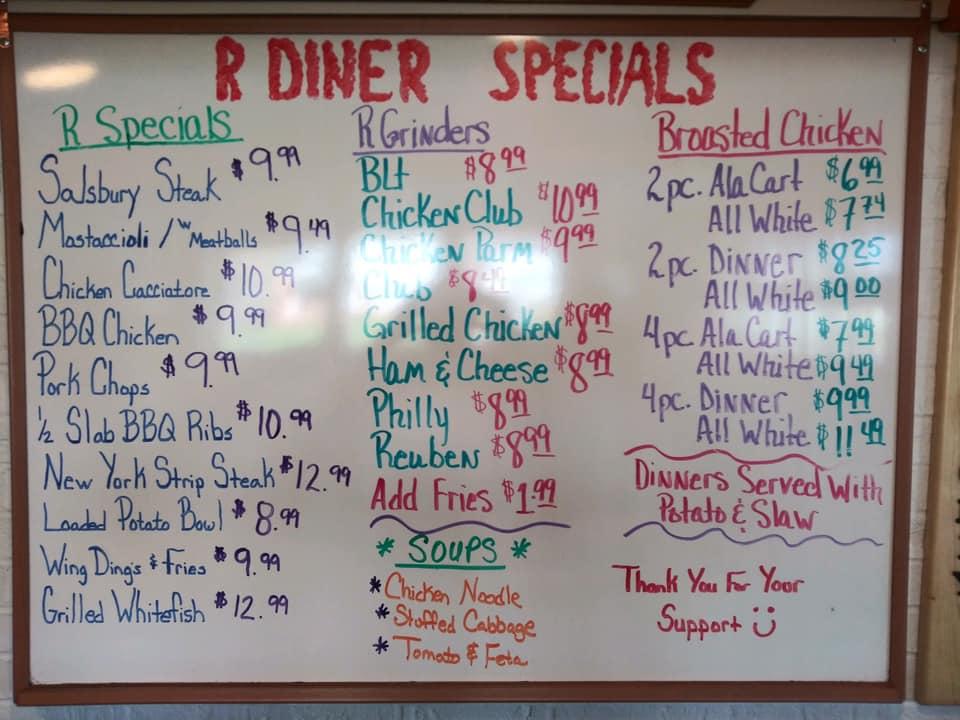 R DINER SPECIALS
R Specials
Salsbury Steak $9.99
Mostaccioli /w Meatballs $9.49
Chicken Cacciatore $10.99
BBQ Chicken $9.99
Pork Chops $9.99
½ Slab BBQ Ribs $10.99
New York Strip Steak $12.99
Loaded Potato Bowl $8.99
Wing Ding's & Fries $9.99
Grilled Whitefish $12.99
R Grinders
BLt $8.99
Chicken Club $10.99
Chicken Parm $9.99
Club
Grilled Chicken $8.99
Ham & Cheese $8.99
Philly $8.99
Reuben $8.99
Add Fries $1.99
* SOUPS *
* Chicken Noodle
* Stuffed Cabbage
* Tomato & Feta
Broasted Chicken
2pc. Ala Cart $6.99
All White $7.74
2pc. Dinner $8.25
All White $9.00
4pc Ala Cart $7.99
All White $9.49
4pc. Dinner $9.99
All White $11.49
Dinners Served With
Potato & Slaw
Thank You For Your
Support